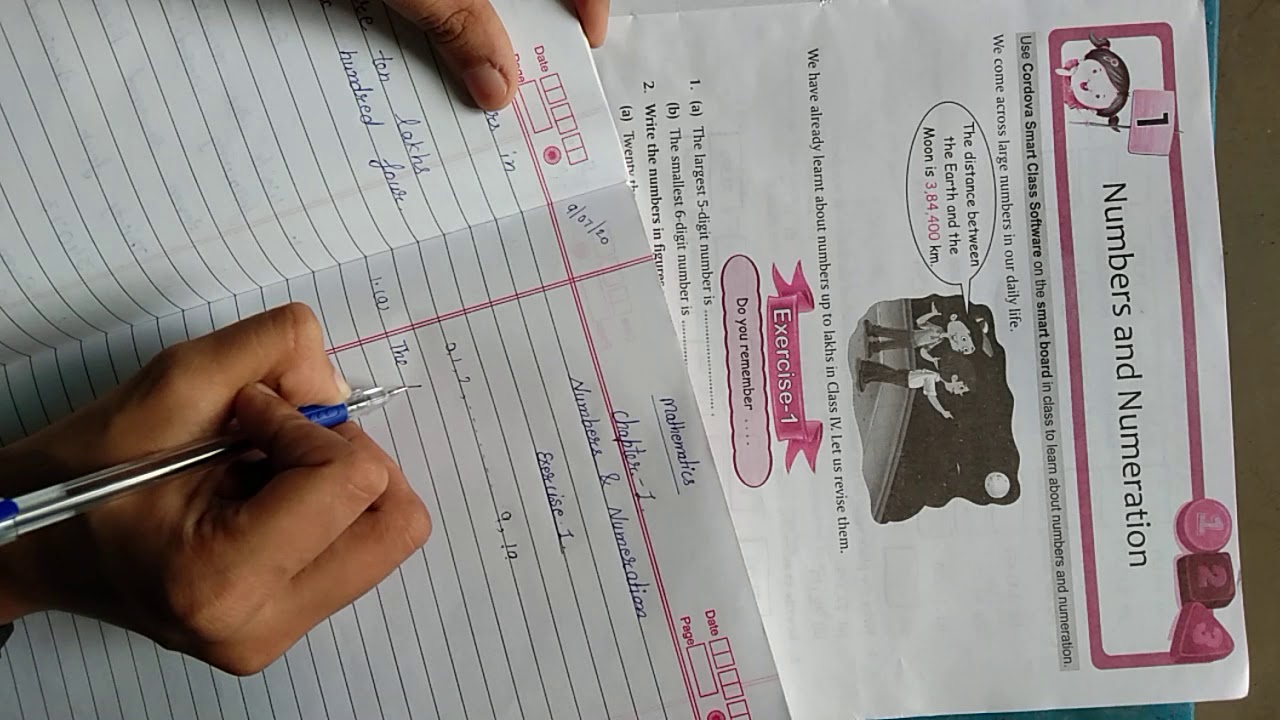 1
Numbers and Numeration
1 2 3
Use Cordova Smart Class Software on the smart board in class to learn about numbers and numeration.
We come across large numbers in our daily life.
The distance between
the Earth and the
Moon is 3,84,400 km.
We have already learnt about numbers up to lakhs in Class IV. Let us revise them.
Exercise-1
Do you remember ....
1. (a) The largest 5-digit number is ....................
(b) The smallest 6-digit number is ....................
2. Write the numbers in figures
(a) Twenty
Date
Page
in
ten lakhs
hundred four.
9/07/20
Date
Page
Mathematics
Chapter-1
Numbers & Numeration
Exercise-1
1.(a) The